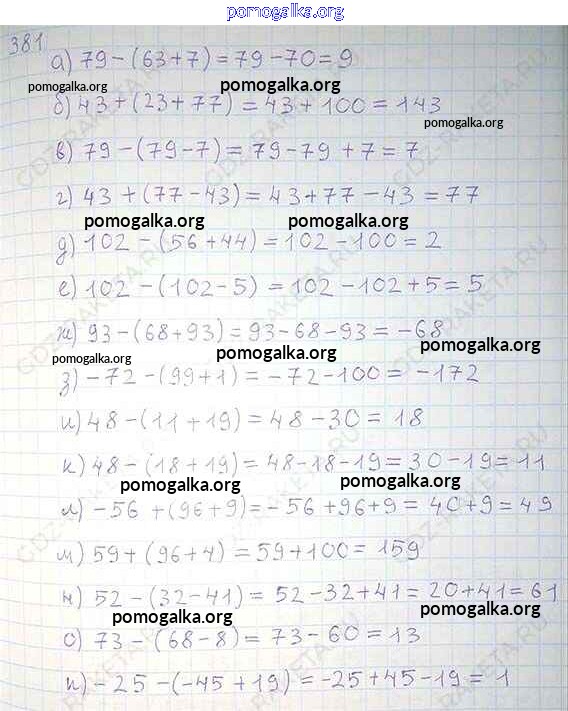 pomogalka.org
381
а) 79 - (63 + 7) = 79 - 70 = 9
pomogalka.org pomogalka.org
б) 43 + (23 + 77) = 43 + 100 = 143
pomogalka.org
в) 79 - (79 - 7) = 79 - 79 + 7 = 7
г) 43 + (77 - 43) = 43 + 77 - 43 = 77
pomogalka.org pomogalka.org
д) 102 - (56 + 44) = 102 - 100 = 2
е) 102 - (102 - 5) = 102 - 102 + 5 = 5
ж) 93 - (68 + 93) = 93 - 68 - 93 = -68
pomogalka.org pomogalka.org pomogalka.org
з) -72 - (99 + 1) = -72 - 100 = -172
и) 48 - (11 + 19) = 48 - 30 = 18
к) 48 - (18 + 19) = 48 - 18 - 19 = 30 - 19 = 11
pomogalka.org pomogalka.org
л) -56 + (96 + 9) = -56 + 96 + 9 = 40 + 9 = 49
м) 59 + (96 + 4) = 59 + 100 = 159
н) 52 - (32 - 41) = 52 - 32 + 41 = 20 + 41 = 61
pomogalka.org pomogalka.org
о) 73 - (68 - 8) = 73 - 60 = 13
п) -25 - (-45 + 19) = -25 + 45 - 19 = 1